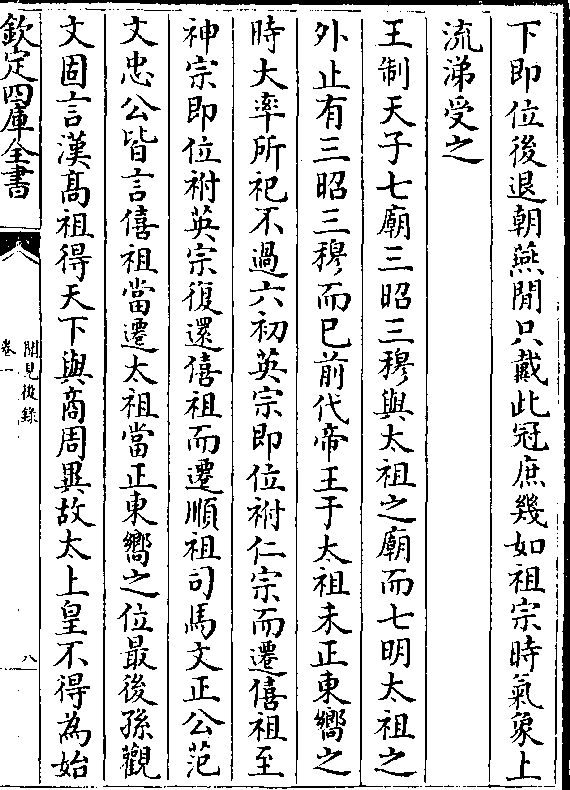 下即位後退朝燕閒只戴此冠庶幾如祖宗時氣象上
流涕受之
王制天子七廟三昭三穆與太祖之廟而七明太祖之
外止有三昭三穆而已前代帝王于太祖未正東嚮之
時大率所祀不過六初英宗即位祔仁宗而遷僖祖至
神宗即位祔英宗復還僖祖而遷順祖司馬文正公范
文忠公皆言僖祖當遷太祖當正東嚮之位最後孫觀
文固言漢髙祖得天下與商周異故太上皇不得為始
欽定四庫全書
聞見後錄
卷一
八